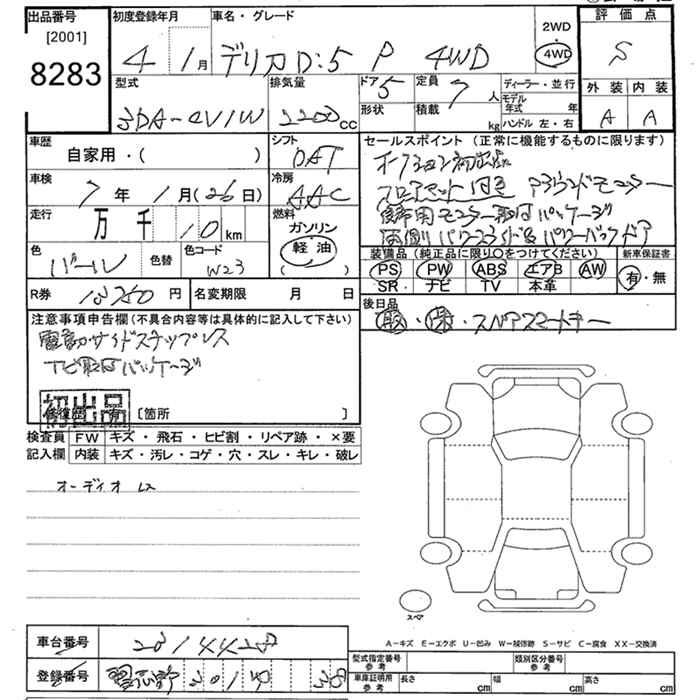 出品番号 [2001] 8283
初度登録年月 4 1月
車名・グレード デリカD:5 P 4WD
2WD
4WD
評価点 S
外装 内装
A A
型式 3DA-CV1W
排気量 2200cc
ドア 5
形状
定員 7人
積載 kg
ディーラー・並行
モデル年式 年
ハンドル 左・右
車歴 自家用・( )
シフト DAT
車検 7年 1月(26日)
冷房 AAC
走行 万 千 10 km
燃料 ガソリン
軽油
( )
色 パール
色替
色コード W23
R券 円
名変期限 月 日
セールスポイント (正常に機能するものに限ります)
フロアマット付き アラウンドモニター
後席用モニター取付パッケージ
両側パワースライド&パワーバックドア
装備品 (純正品に限り○をつけてください)
PS PW ABS エアB AW
SR ナビ TV 本革
新車保証書 有・無
後日品 取・保・スペアスマートキー
注意事項申告欄 (不具合内容等は具体的に記入して下さい)
電動サイドステップレス
ナビ取付パッケージ
初出品
修復歴 有 [箇所 ]
検査員 FW キズ・飛石・ヒビ割・リペア跡・×要
記入欄 内装 キズ・汚レ・コゲ・穴・スレ・キレ・破レ
オーディオレス
スペア
A-キズ E-エクボ U-凹み W-補修跡 S-サビ C-腐食 XX-交換済
車台番号
登録番号
型式指定番号 参考
類別区分番号 参考
車庫証明用 参考 長さ cm 幅 cm 高さ cm